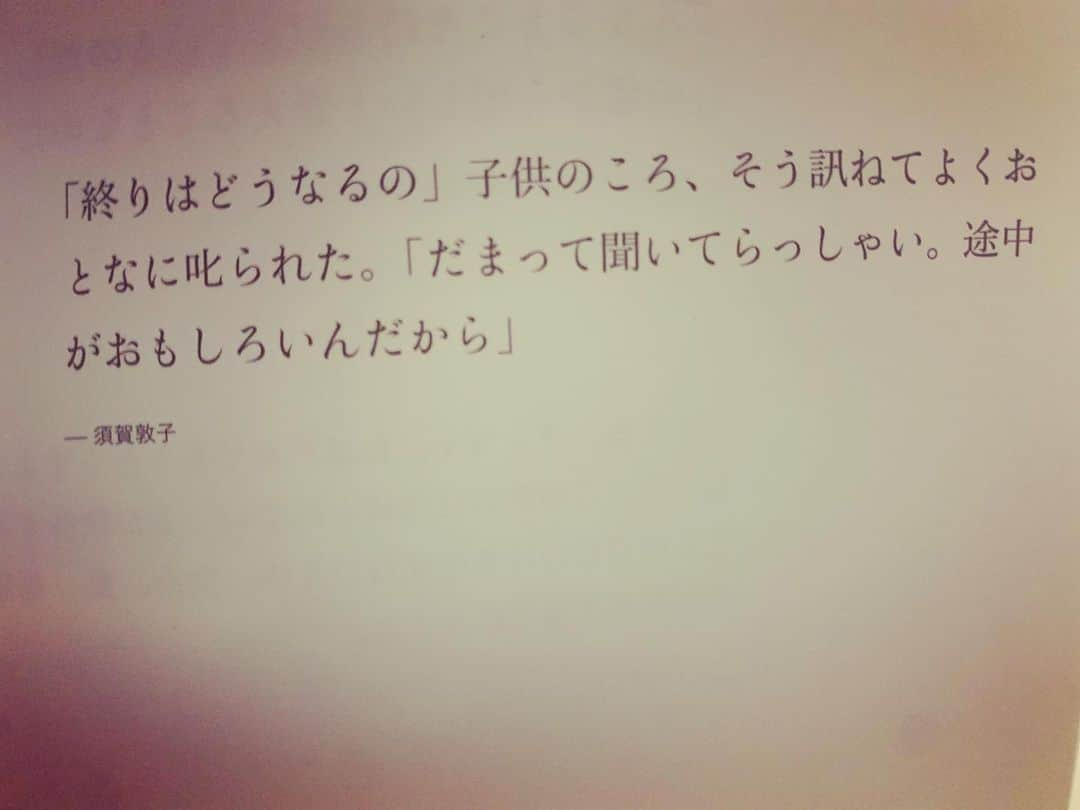 「終りはどうなるの」子供のころ、そう訊ねてよくお
となに叱られた。「だまって聞いてらっしゃい。途中
がおもしろいんだから」
— 須賀敦子